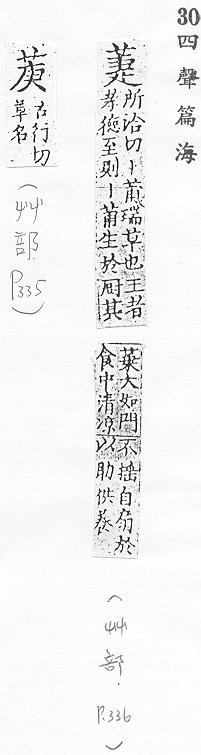 30 四聲篇海
萐
所洽切〡莆瑞草也王者
孝德至則〡莆生於厨其
葉大如門不揺自扇於
食中清涼以助供養
(艸部. P.336)
莄
古行切
草名
(艸部 P.335)